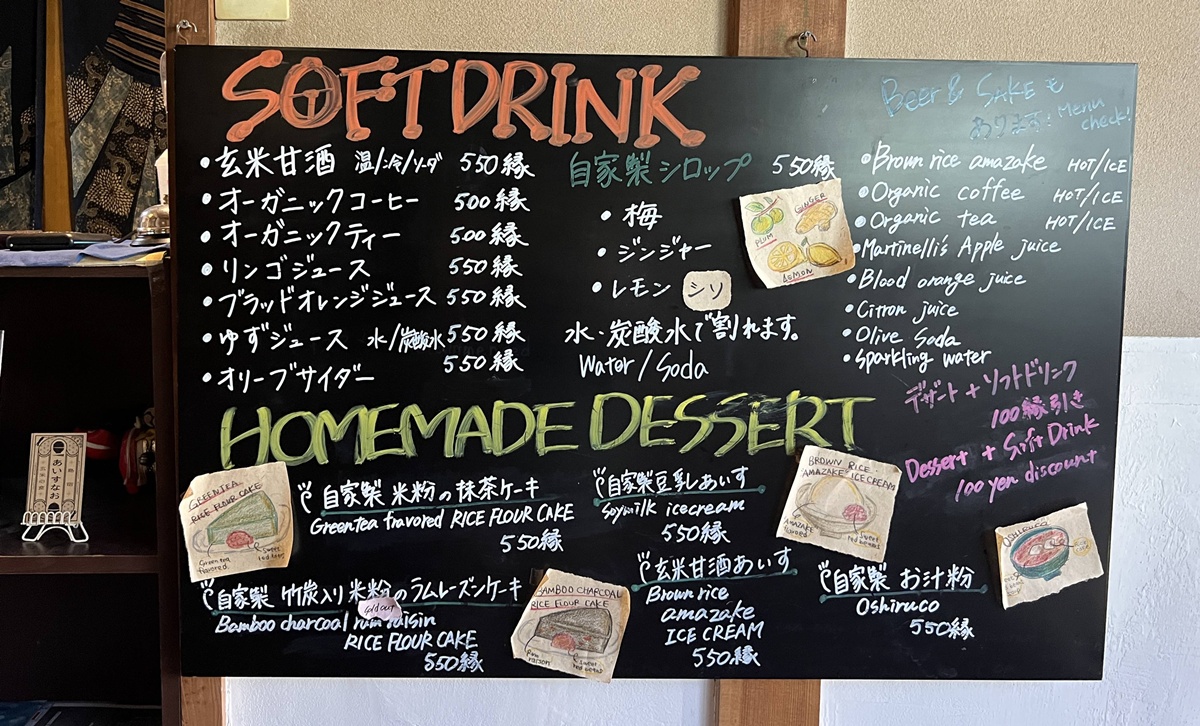 SOFT DRINK
• 玄米甘酒 温/冷/ソーダ 550縁
• オーガニックコーヒー 500縁
• オーガニックティー 500縁
• リンゴジュース 550縁
• ブラッドオレンジジュース 550縁
• ゆずジュース 水/炭酸水 550縁
• オリーブサイダー 550縁
自家製シロップ 550縁
• 梅
• ジンジャー
• レモン シソ
水・炭酸水で割れます。
Water/Soda
GINGER
PLUM
LEMON
Beer & SAKEも
あります! Menu
check!
• Brown rice amazake HOT/ICE
• Organic coffee HOT/ICE
• Organic tea HOT/ICE
• Martinelli's Apple juice
• Blood orange juice
• Citron juice
• Olive Soda
• Sparkling water
デザート + ソフトドリンク
100縁引き
Dessert + Soft Drink
100 yen discount
HOMEMADE DESSERT
GREENTEA
RICE FLOUR CAKE
Greentea
flavored
sweet
red beans
自家製 米粉の抹茶ケーキ
Greentea fravored RICE FLOUR CAKE
550縁
自家製 竹炭入り米粉のラムレーズンケーキ
Sold out
Bamboo charcoal rum raisin
RICE FLOUR CAKE
550縁
BAMBOO CHARCOAL
RICE FLOUR CAKE
Rum
raisin
sweet
red beans
自家製豆乳あいす
Soymilk icecream
550縁
玄米甘酒あいす
Brown rice
amazake
ICE CREAM
550縁
BROWN RICE
"AMAZAKE" ICECREAM
AMAZAKE
flavored
sweet
red beans
自家製 お汁粉
Oshiruco
550縁
OSHIRUCO
あいすなお